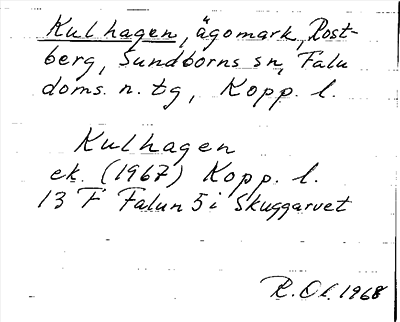 Kulhagen, ägomark, Rost-
berg, Sundborns sn, Falu
doms. n. tg, Kopp. l.
Kulhagen
ek. (1967) Kopp. l.
13 F Falun 5 i Skuggarvet
R. Ol. 1968